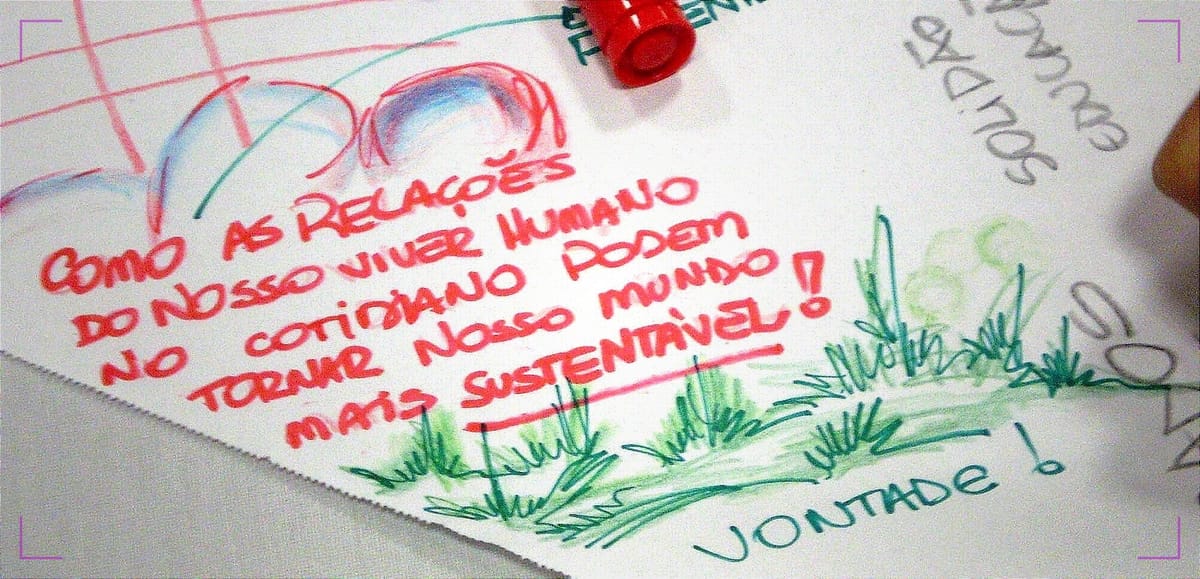 COMO AS RELAÇÕES
DO NOSSO VIVER HUMANO
NO COTIDIANO PODEM
TORNAR NOSSO MUNDO
MAIS SUSTENTÁVEL!
VONTADE!
SOLIDÃO